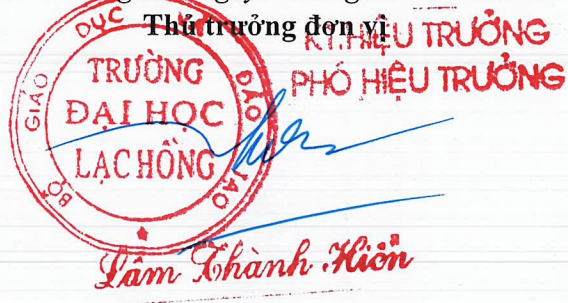 Thủ trưởng đơn vị
KT.HIỆU TRƯỞNG
PHÓ HIỆU TRƯỞNG
BỘ GIÁO DỤC ĐÀO TẠO
TRƯỜNG
ĐẠI HỌC
LẠC HỒNG
Lâm Thành Hiển